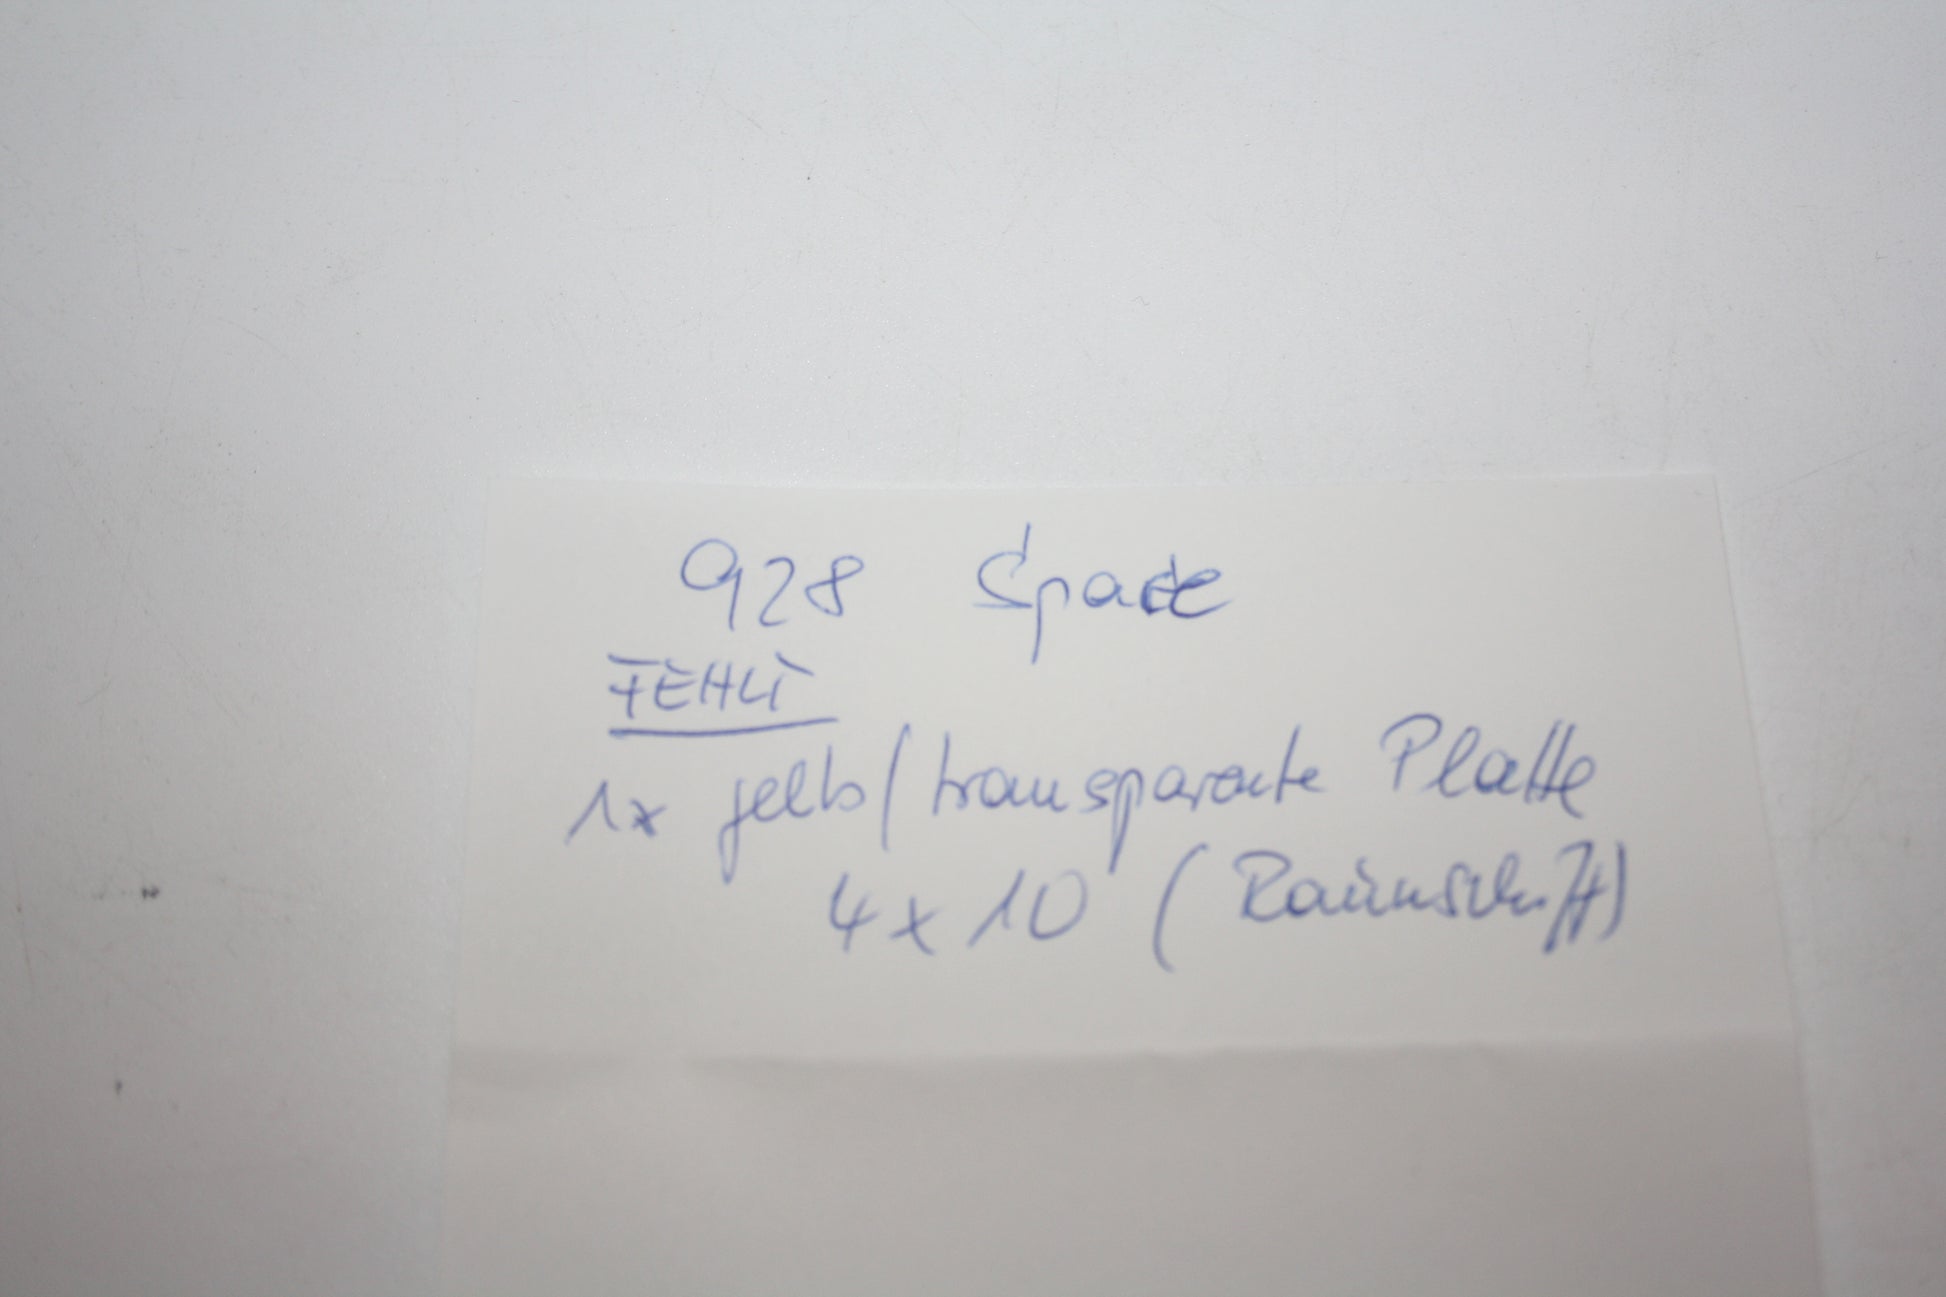 928 Space
FEHLT
1x gelb/transparente Platte
4 x 10 (Raumschiff)